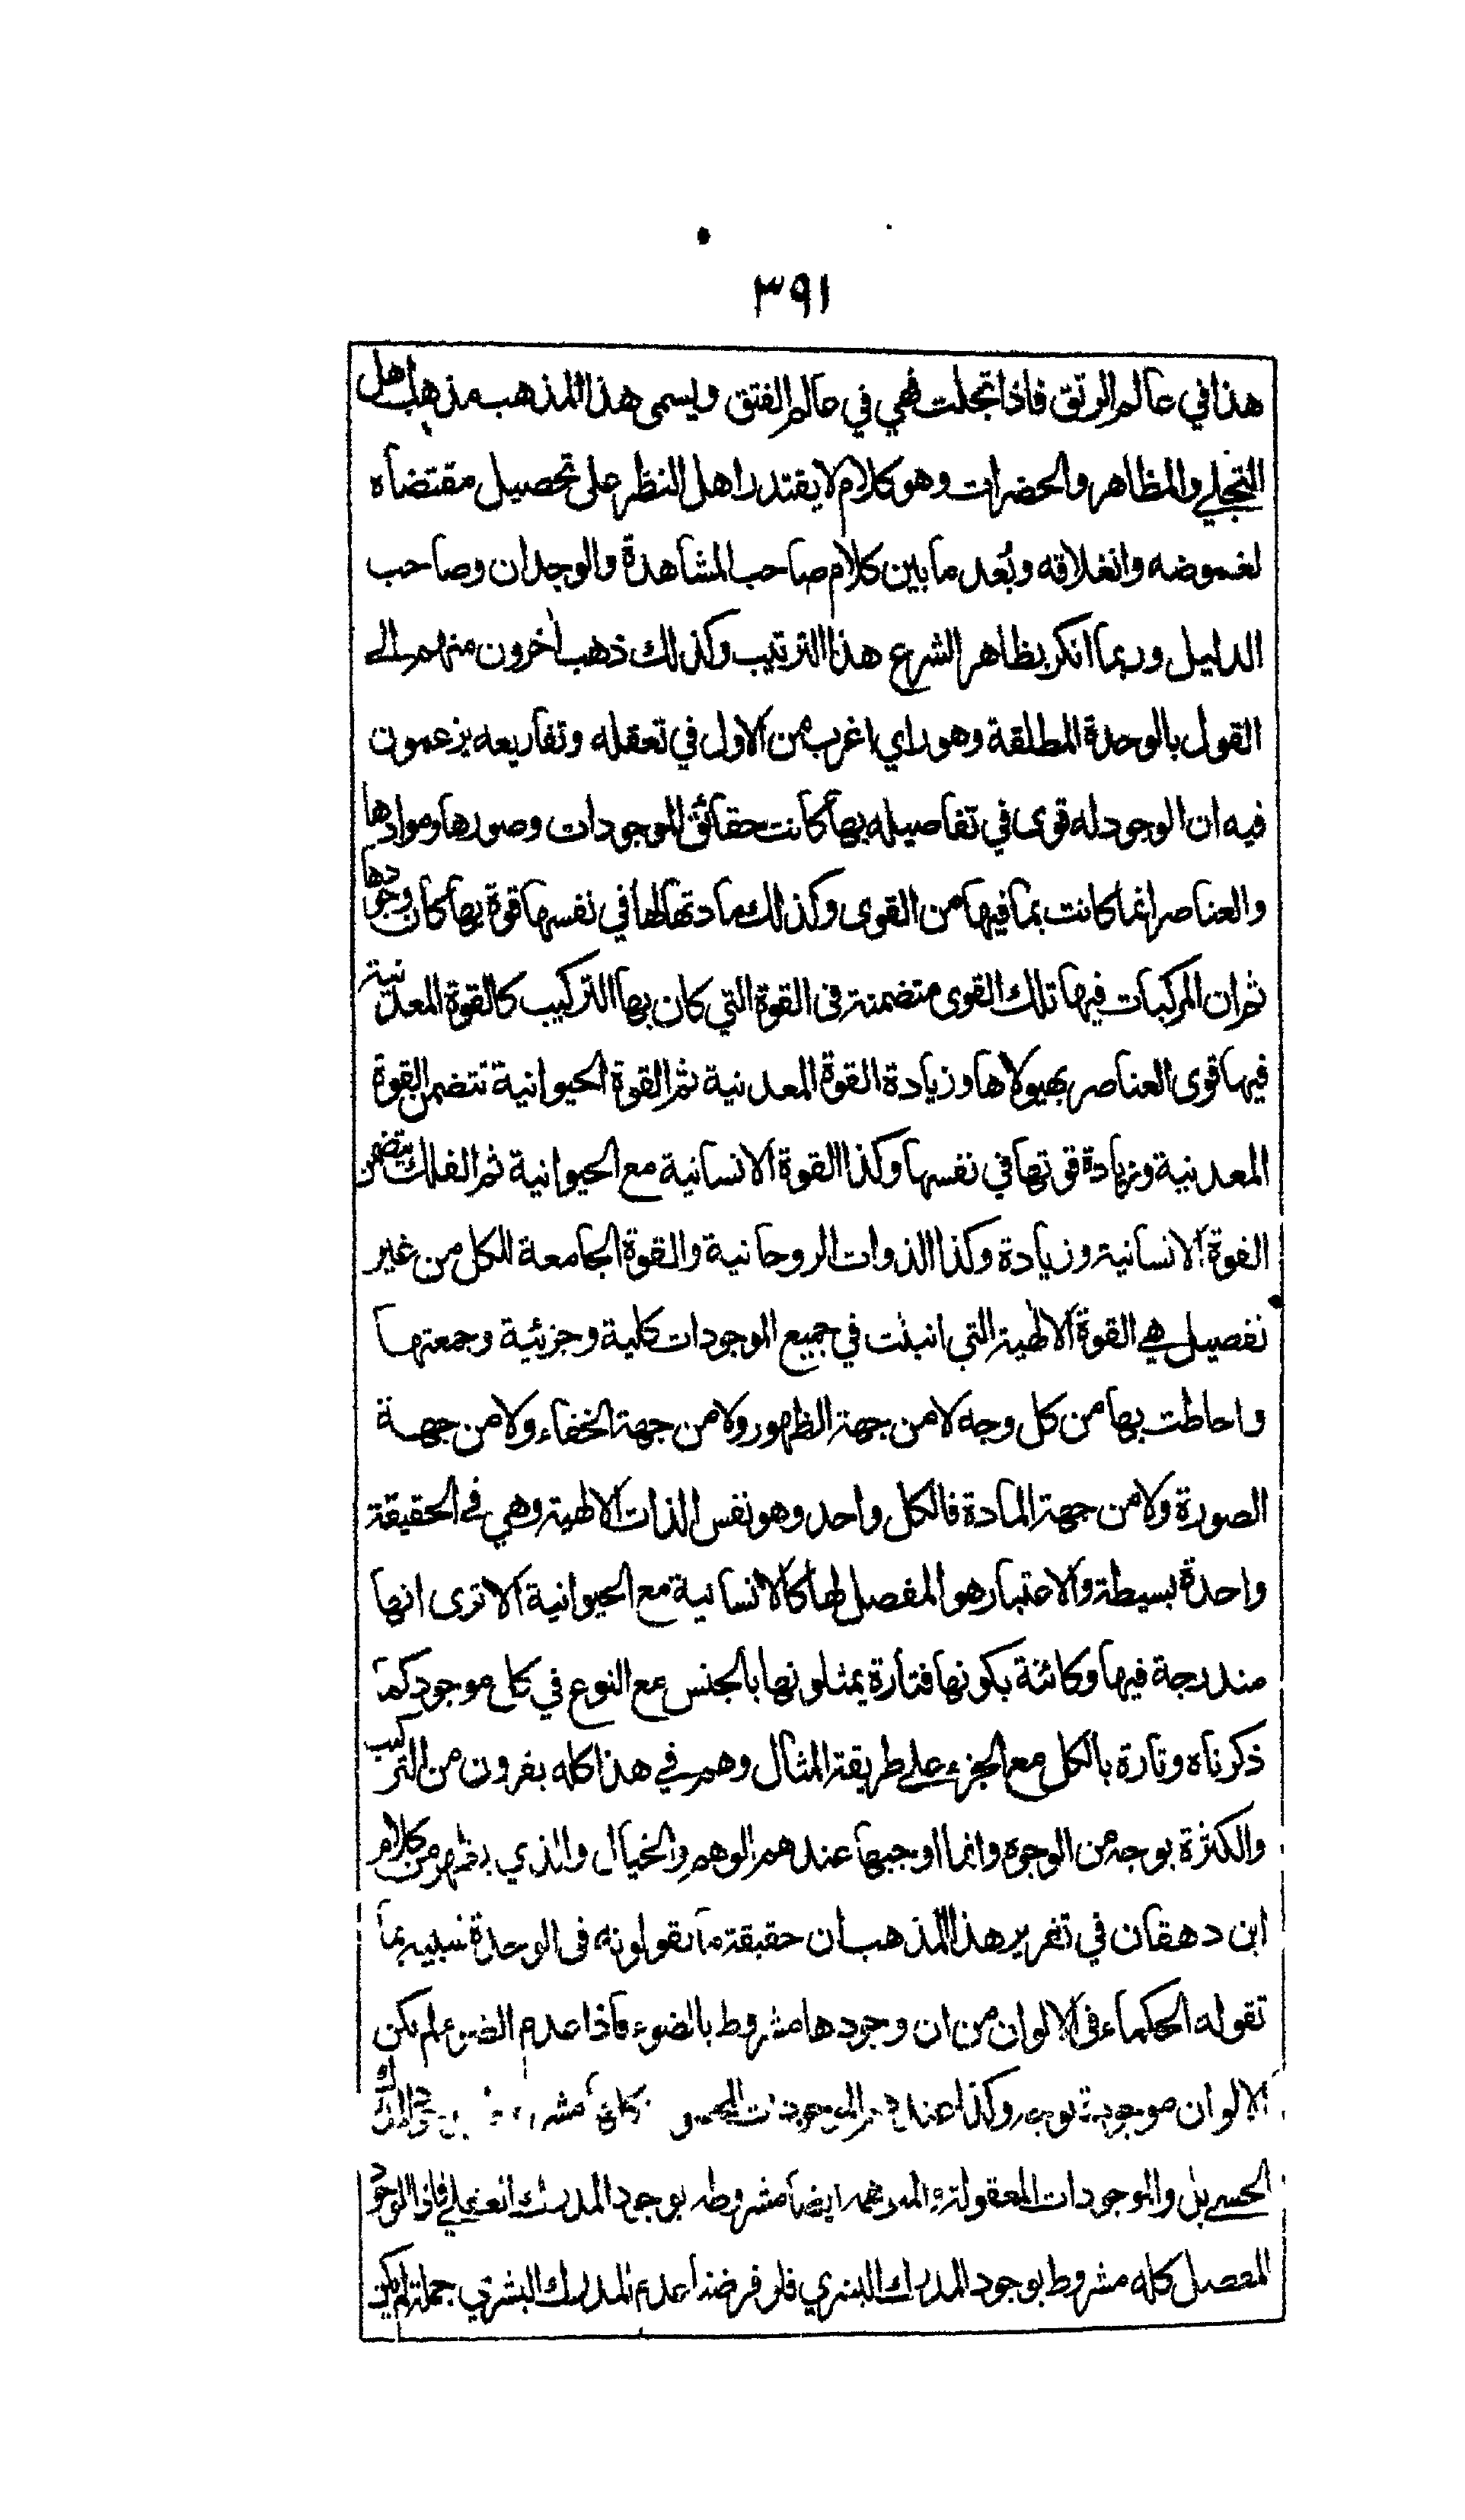 ٣٩١
هذا في عالم الرتق فاذا تجلت فهي في عالم الفتق ويسمى هذا المذهب مذهب اهل
التجلي والمظاهر والحضرات وهو كلام لا يقتدر اهل النظر على تحصيل مقتضاه
لغموضه وانغلاقه وبُعد ما بين كلام صاحب المشاهدة والوجدان وصاحب
الدليل وربما انكر بظاهر الشرع هذا الترتيب وكذلك ذهب اخرون منهم الى
القول بالوحدة المطلقة وهو راي اغرب من الاول في تعقله وتفاريعه يزعمون
فيه ان الوجود له قوى في تفاصيله بها كانت حقائق الموجودات وصورها وموادها
والعناصر انما كانت بما فيها من القوى وكذلك مادتها لها في نفسها قوة بها كان وجودها
ثم ان المركبات فيها تلك القوى متضمنة في القوة التي كان بها التركيب كالقوة المعدنية
فيها قوى العناصر بهيولاها وزيادة القوة المعدنية ثم القوة الحيوانية تتضمن القوة
المعدنية وزيادة قوتها في نفسها وكذا القوة الانسانية مع الحيوانية ثم الفلك يتضمن
القوة الانسانية وزيادة وكذا الذوات الروحانية والقوة الجامعة للكل من غير
تفصيل هي القوة الالهية التي انبثت في جميع الموجودات كلية وجزئية وجمعتها
واحاطت بها من كل وجه لا من جهة الظهور ولا من جهة الخفاء ولا من جهة
الصورة ولا من جهة المادة فالكل واحد وهو نفس الذات الالهية وهي في الحقيقة
واحدة بسيطة والاعتبار هو المفصل لها كالانسانية مع الحيوانية الا ترى انها
مندرجة فيها وكائنة بكونها فتارة يمثلونها بالجنس مع النوع في كل موجود كما
ذكرناه وتارة بالكل مع الجزء على طريقة المثال وهم في هذا كله يفرون من التركيب
والكثرة بوجه من الوجوه وانما اوجبها عندهم الوهم والخيال والذي يظهر من كلام
ابن دهقان في تقرير هذا المذهب ان حقيقة ما يقولونه في الوحدة شبيه بما
تقوله الحكماء في الالوان من ان وجودها مشروط بالضوء فاذا عدم الضوء لم تكن
الالوان موجودة بوجه وكذا عندهم الموجودات المحسوسة كلها مشروطة المدرك
الحسي بل والموجودات المعقولة والمتوهمة ايضا مشروطه بوجود المدرك العقلي فاذا الوجود
المفصل كله مشروط بوجود المدرك البشري فلو فرضنا عدم المدرك البشري جملة لم يكن